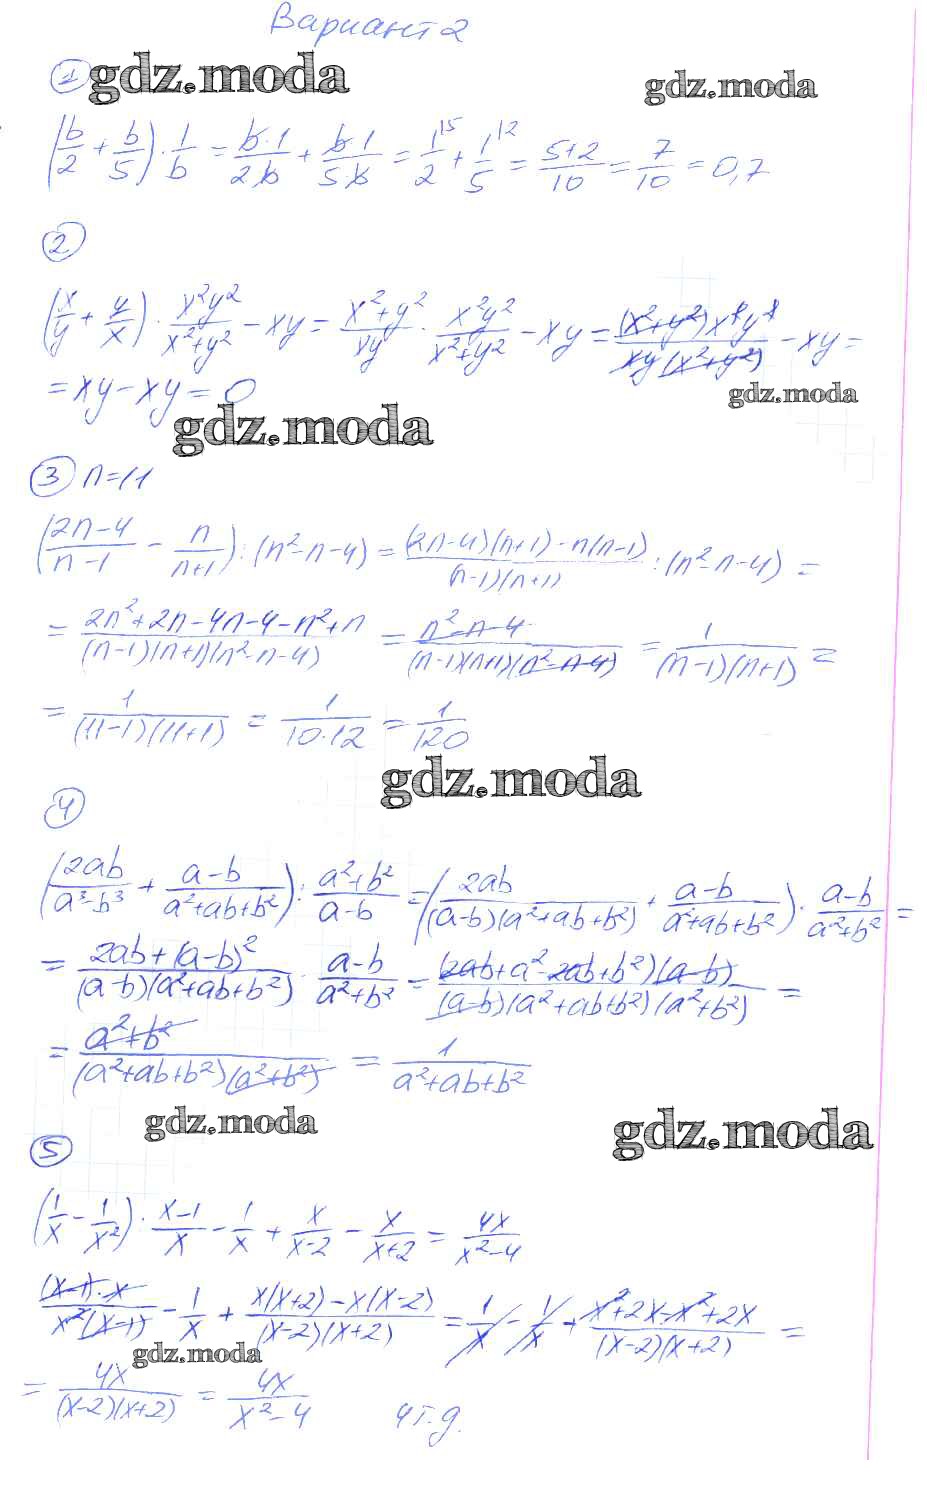 Вариант 2
① gdz.moda gdz.moda
(b/2 + b/5) · 1/b = b·1/2b + b·1/5b = 1/2 + 1/5 = (5+2)/10 = 7/10 = 0,7
②
(x/y + y/x) · x²y²/(x²+y²) - xy = (x²+y²)/xy · x²y²/(x²+y²) - xy = (x²+y²)x²y²/(xy(x²+y²)) - xy =
= xy - xy = 0
gdz.moda
gdz.moda
③ n=11
((2n-4)/(n-1) - n/(n+1)) : (n²-n-4) = ((2n-4)(n+1) - n(n-1))/((n-1)(n+1)) : (n²-n-4) =
= (2n²+2n-4n-4-n²+n)/((n-1)(n+1)(n²-n-4)) = (n²-n-4)/((n-1)(n+1)(n²-n-4)) = 1/((n-1)(n+1)) =
= 1/((11-1)(11+1)) = 1/(10·12) = 1/120
gdz.moda
④
(2ab/(a³-b³) + (a-b)/(a²+ab+b²)) : (a²+b²)/(a-b) = (2ab/((a-b)(a²+ab+b²)) + (a-b)/(a²+ab+b²)) · (a-b)/(a²+b²) =
= (2ab+(a-b)²)/((a-b)(a²+ab+b²)) · (a-b)/(a²+b²) = (2ab+a²-2ab+b²)(a-b)/((a-b)(a²+ab+b²)(a²+b²)) =
= (a²+b²)/((a²+ab+b²)(a²+b²)) = 1/(a²+ab+b²)
gdz.moda gdz.moda
⑤
(1/x - 1/x²) · (x-1)/x - 1/x + x/(x-2) - x/(x+2) = 4x/(x²-4)
(x-1)·x/(x²(x-1)) - 1/x + (x(x+2)-x(x-2))/((x-2)(x+2)) = 1/x - 1/x + (x²+2x-x²+2x)/((x-2)(x+2)) =
gdz.moda
= 4x/((x-2)(x+2)) = 4x/(x²-4) ч.т.д.